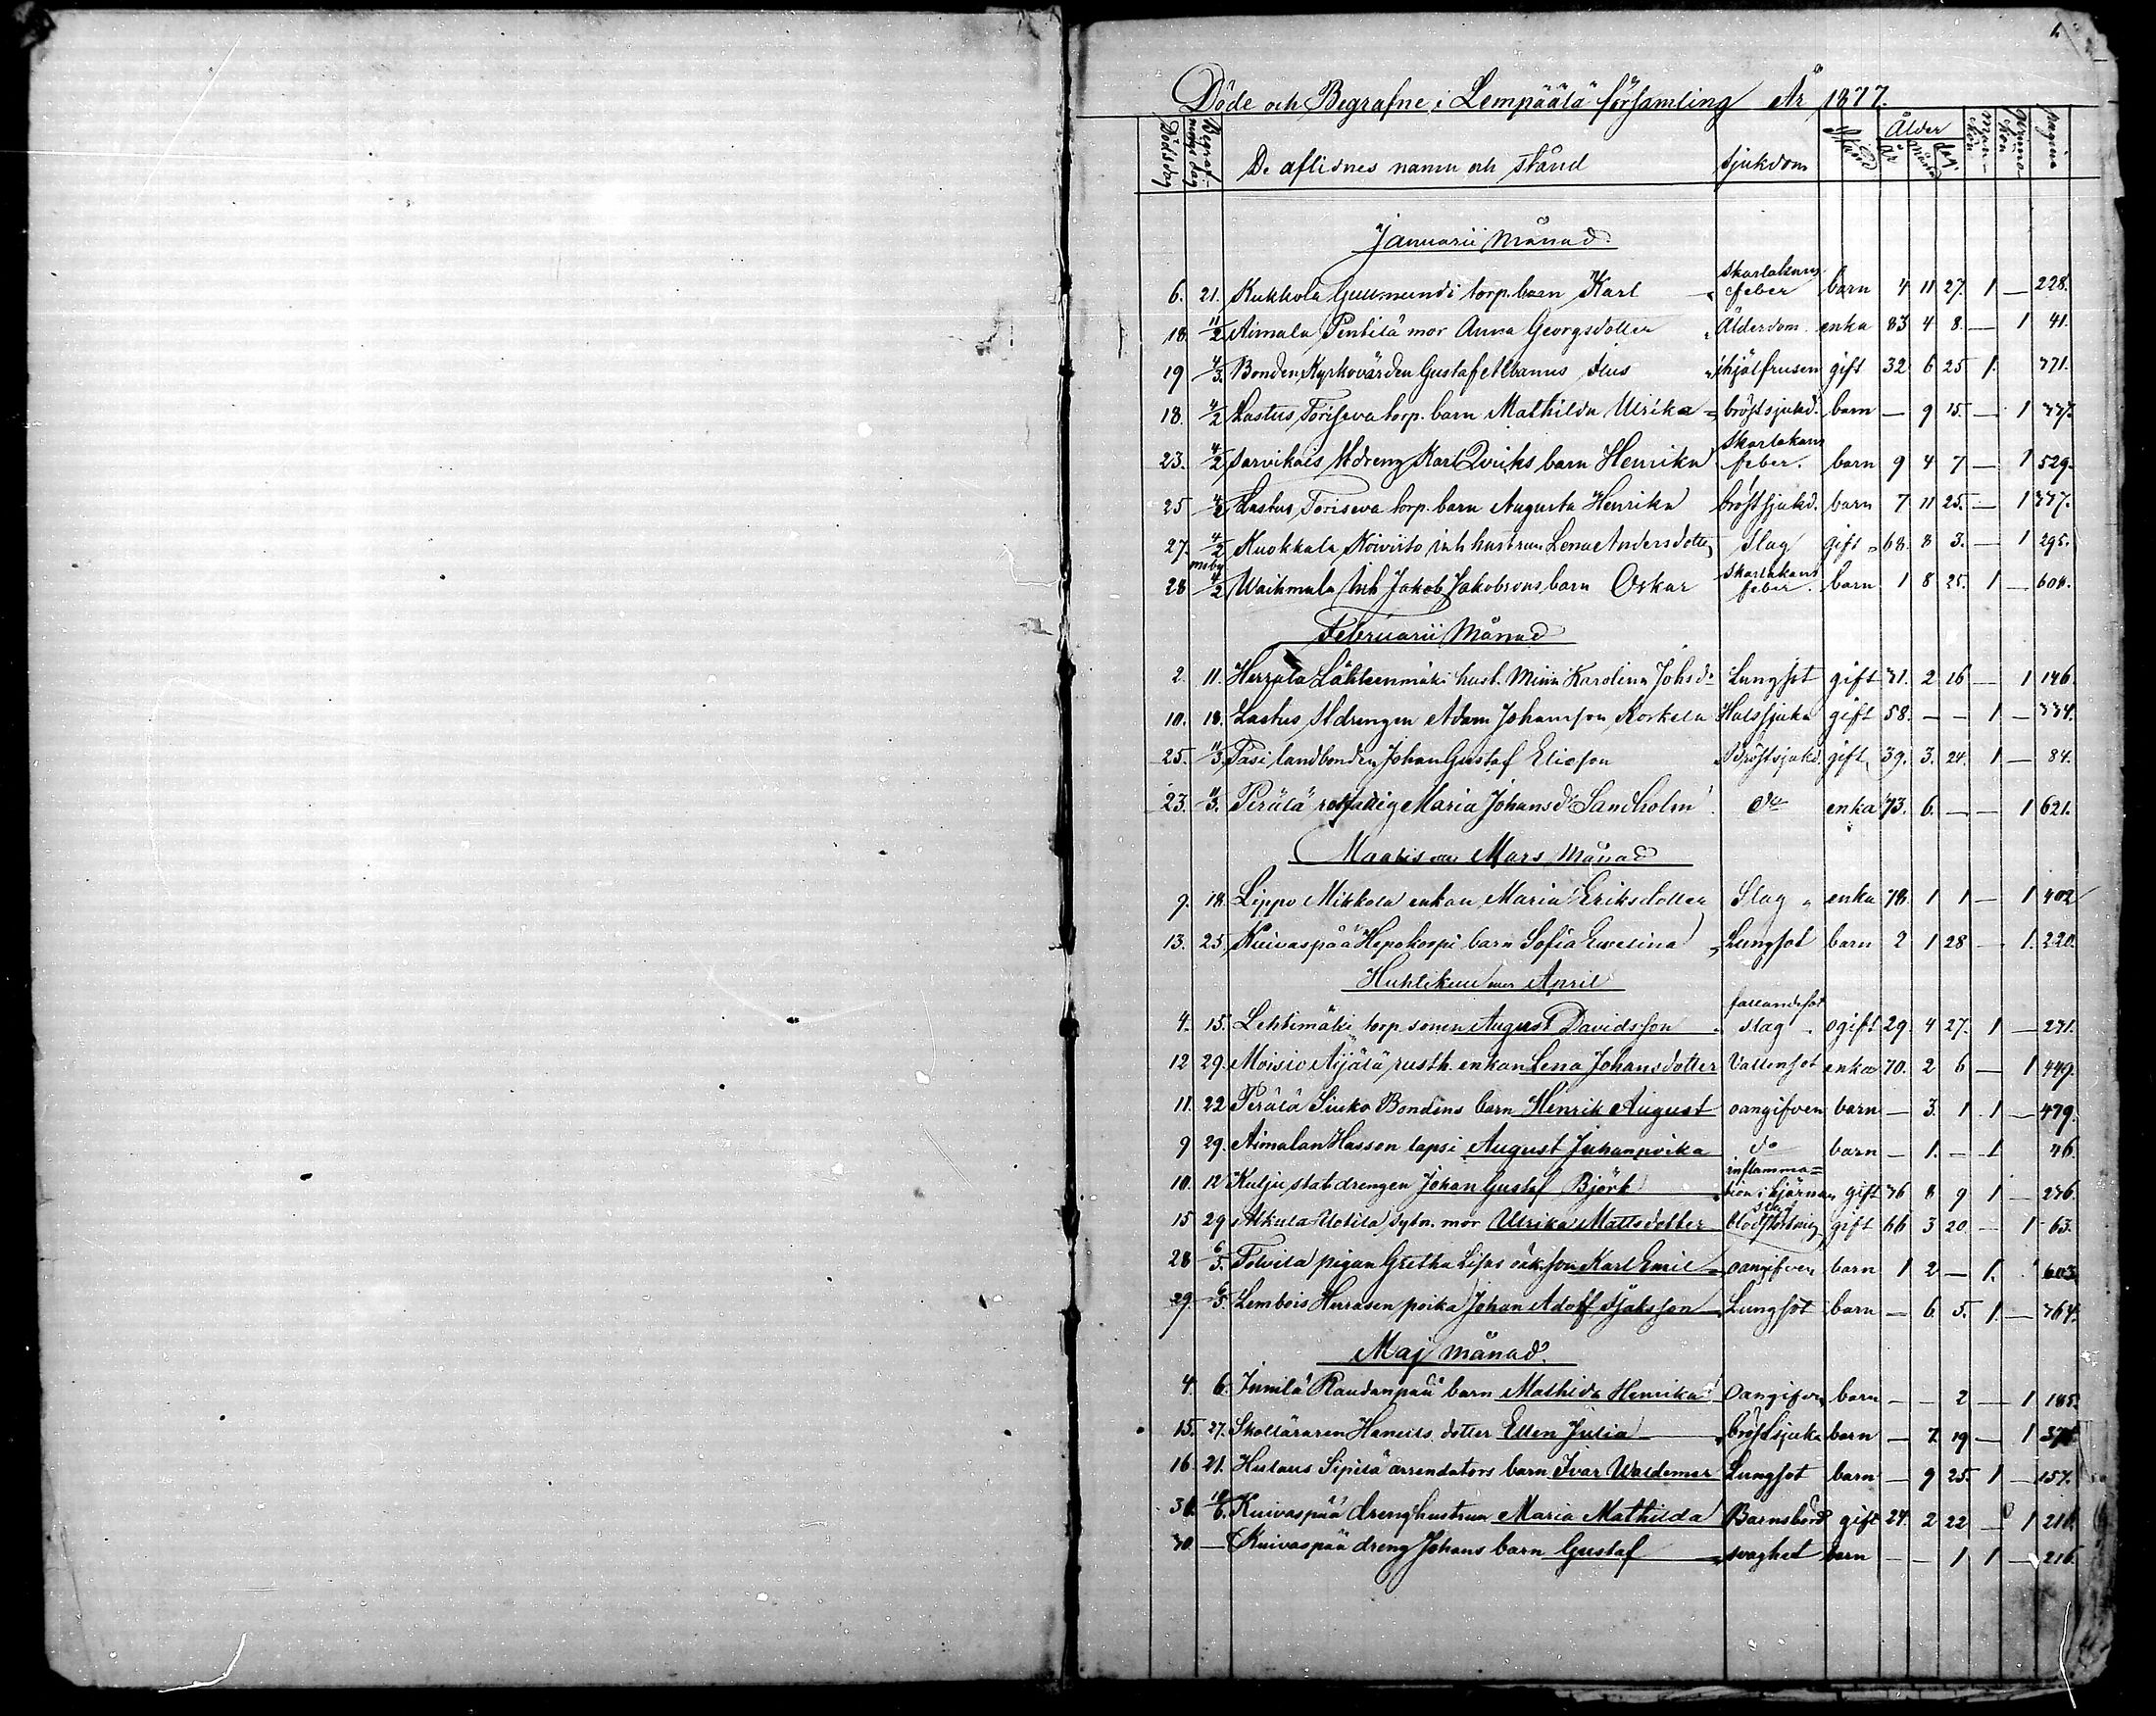 1.
Döde och Begrafne i Lempäälä församling År 1877.
Dödsdag Begrafnings dag De aflidnes namn och stånd sjukdom Stånd Ålder år månad dag. Mankön Qvinnokön pagina
Januarii månad
6. 21. Kukkola Gullmundi torp. barn Karl skarlakans feber barn 4 11 27. 1 — 228.
18. 11/2 Aimala Pentilä mor Anna Georgsdotter Ålderdom. enka 83 4 8. — 1 41.
19 4/3. Bonden Kyrkovärden Gustaf Albanus ihjälfrusen gift 32 6 25 1. 371.
18. 4/2 Lastus Toriseva torp. barn Mathilda Ulrika bröstsjukd. barn — 9 15. — 1 337.
23. 4/2 Sarvikais Karl Qviks barn Henrika Skarlakans feber. barn 9 4 7 — 1 529.
25 4/2 Lastus Toriseva torp. barn Augusta Henrika bröstsjukd. barn 7 11 25. — 1 337.
27. 4/2 Kuokkala Koivisto inh hustrun Lena Andersdotter Slag gift 68. 8 3. — 1 295.
28 4/2 Waihmala inh Jakob Jakobsons barn Oskar skarlakans feber. barn 1 8 25. 1 — 604.
Februarii Månad
2. 11. Herrala Lähteenmäki hust. Minna Karolina Johsdr Lungsot gift 31. 2 16 — 1 146.
10. 18. Lastus Adam Johansson Korkela Halssjuka gift 58. — — 1 — 334.
25. 11/3. Pasi landbonden Johan Gustaf Eliasson Bröstsjukd. gift 39. 3. 24. 1 — 84.
23. 11/3. Perälä Maria Johansdr Sandholm do enka 73. 6. — — 1 621.
Maalis Mars Månad
9. 18. Lippo Mikkola enkan Maria Eriksdotter Slag enka 78. 1 1 — 1 402
13. 25. Kuivaspää Hepokorpi barn Sofia Evelina Lungsot barn 2 1 28 — 1. 220.
Huhtikuu April
4. 15. Lehtimäki torp. sonen August Davidsson fallandesot slag ogift 29. 4 27. 1 — 271.
12 29. Moisio Äijälä rusth. enkan Lena Johansdotter Vattensot enka 70. 2 6 — 1 449.
11. 22 Perälä Siuko Bondens barn Henrik August oangifven barn — 3. 1 1 — 479.
9 29. Aimalan Hasson lapsi August Juhanpoika do barn — 1. — 1 46.
10. 12 Kulju statdrengen Johan Gustaf Björk inflammation i hjärnan gift 36 8 9 1 — 236.
15 29 Alkula Uotila mor Ulrika Mattsdotter blodstörtning gift 66 3 20 — 1 63.
28 6/5. Tolvila pigan Gretha Lisas oäk. son Karl Emil oangifven barn 1 2 — 1. 603.
29. 6/5. Lembois Herrasen poika Johan Adolf Isaksson Lungsot barn — 6 5. 1. — 364.
Maj månad.
4. 6. Innilä Raudanpää barn Mathilda Henrika Oangifven barn — — 2 — 1 185.
15. 27. Skolläraren Hanells dotter Ellen Julia bröstsjuka barn — 7 19 — 1
16. 21. Hulaus Sipilä arrendators barn Ivar Waldemar Lungsot barn — 9 25. 1 — 157.
31. 10/6. Kuivaspää drenghustrun Maria Mathilda Barnsbörd gift 24. 2 22 — 1 216.
30 — Kuivaspää dreng Johans barn Gustaf svaghet barn — — 1 1 — 216.